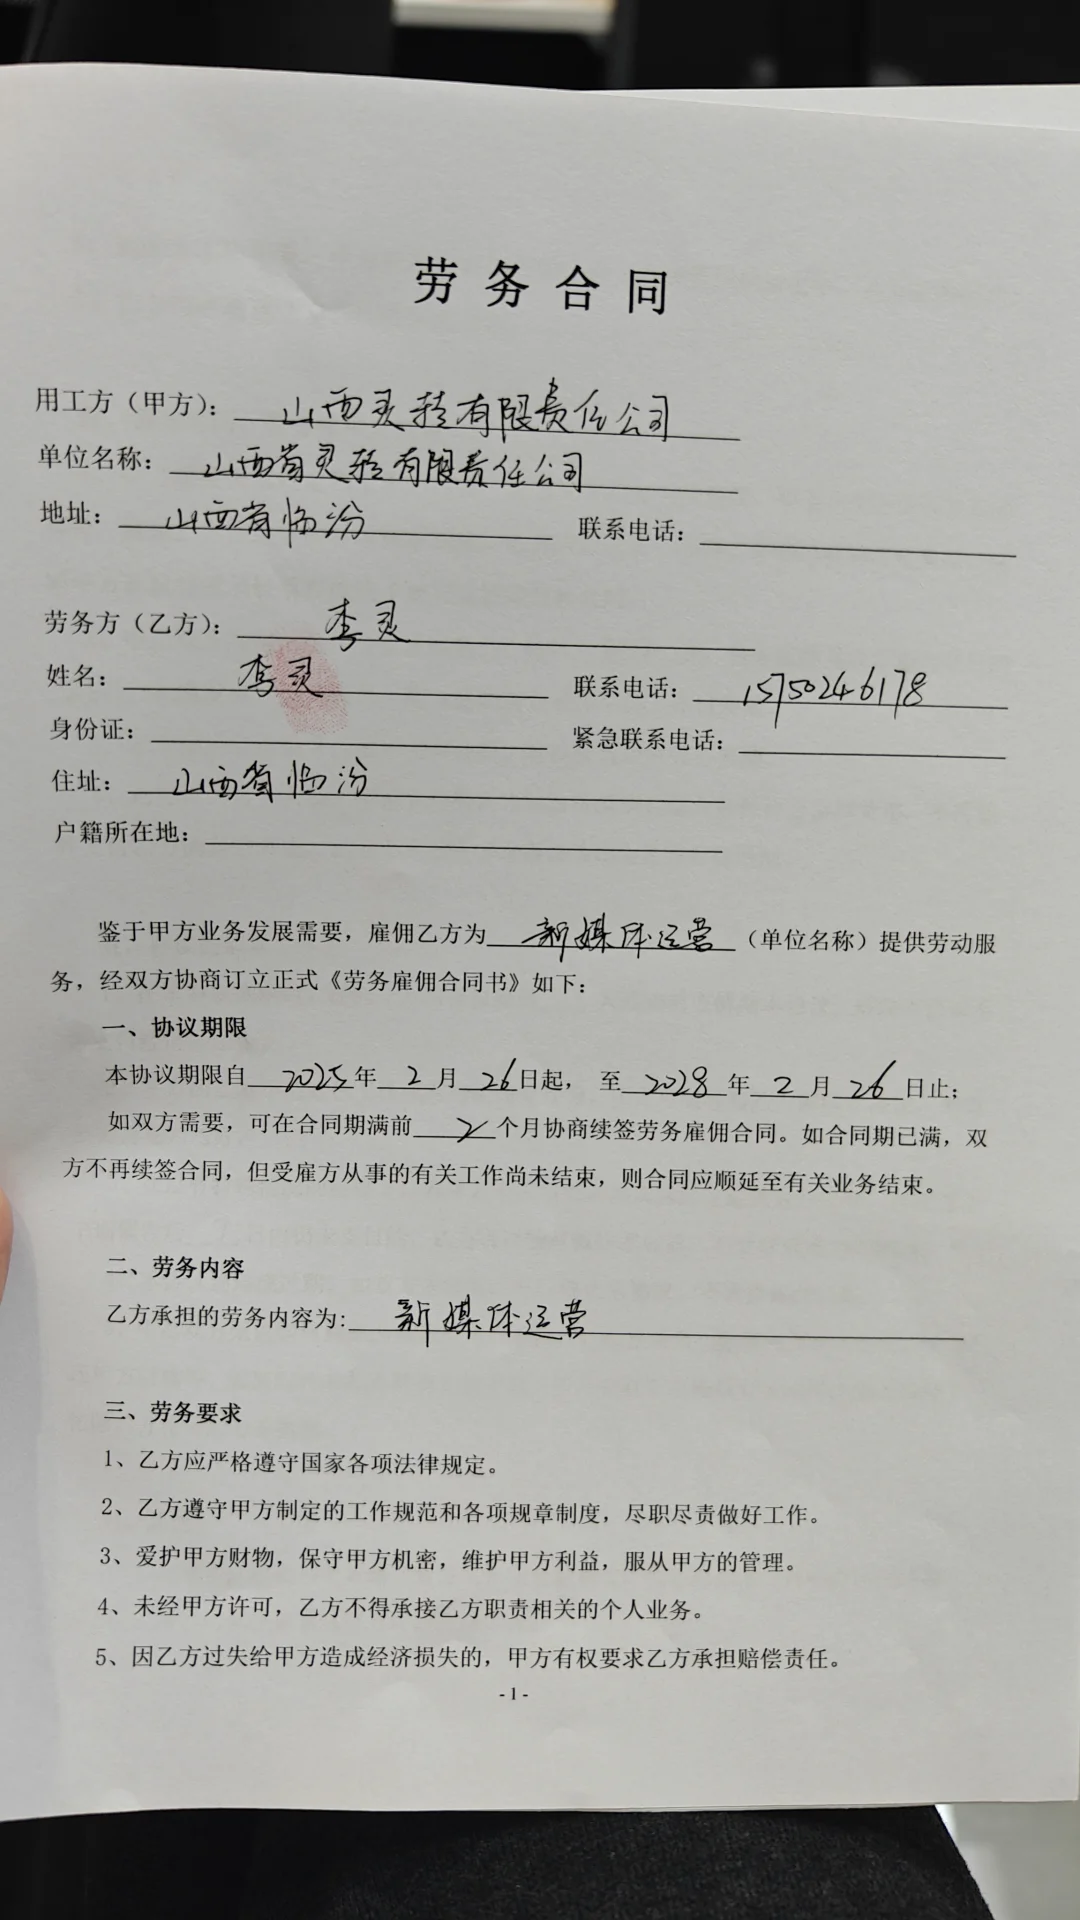 劳务合同
用工方（甲方）：山西灵轻有限责任公司
单位名称：山西省灵轻有限责任公司
地址：山西省临汾 联系电话：
劳务方（乙方）：李灵
姓名：李灵 联系电话：15750246178
身份证： 紧急联系电话：
住址：山西省临汾
户籍所在地：
鉴于甲方业务发展需要，雇佣乙方为新媒体运营（单位名称）提供劳动服
务，经双方协商订立正式《劳务雇佣合同书》如下：
一、协议期限
本协议期限自2025年2月26日起，至2028年2月26日止；
如双方需要，可在合同期满前2个月协商续签劳务雇佣合同。如合同期已满，双
方不再续签合同，但受雇方从事的有关工作尚未结束，则合同应顺延至有关业务结束。
二、劳务内容
乙方承担的劳务内容为:新媒体运营
三、劳务要求
1、乙方应严格遵守国家各项法律规定。
2、乙方遵守甲方制定的工作规范和各项规章制度，尽职尽责做好工作。
3、爱护甲方财物，保守甲方机密，维护甲方利益，服从甲方的管理。
4、未经甲方许可，乙方不得承接乙方职责相关的个人业务。
5、因乙方过失给甲方造成经济损失的，甲方有权要求乙方承担赔偿责任。
- 1 -